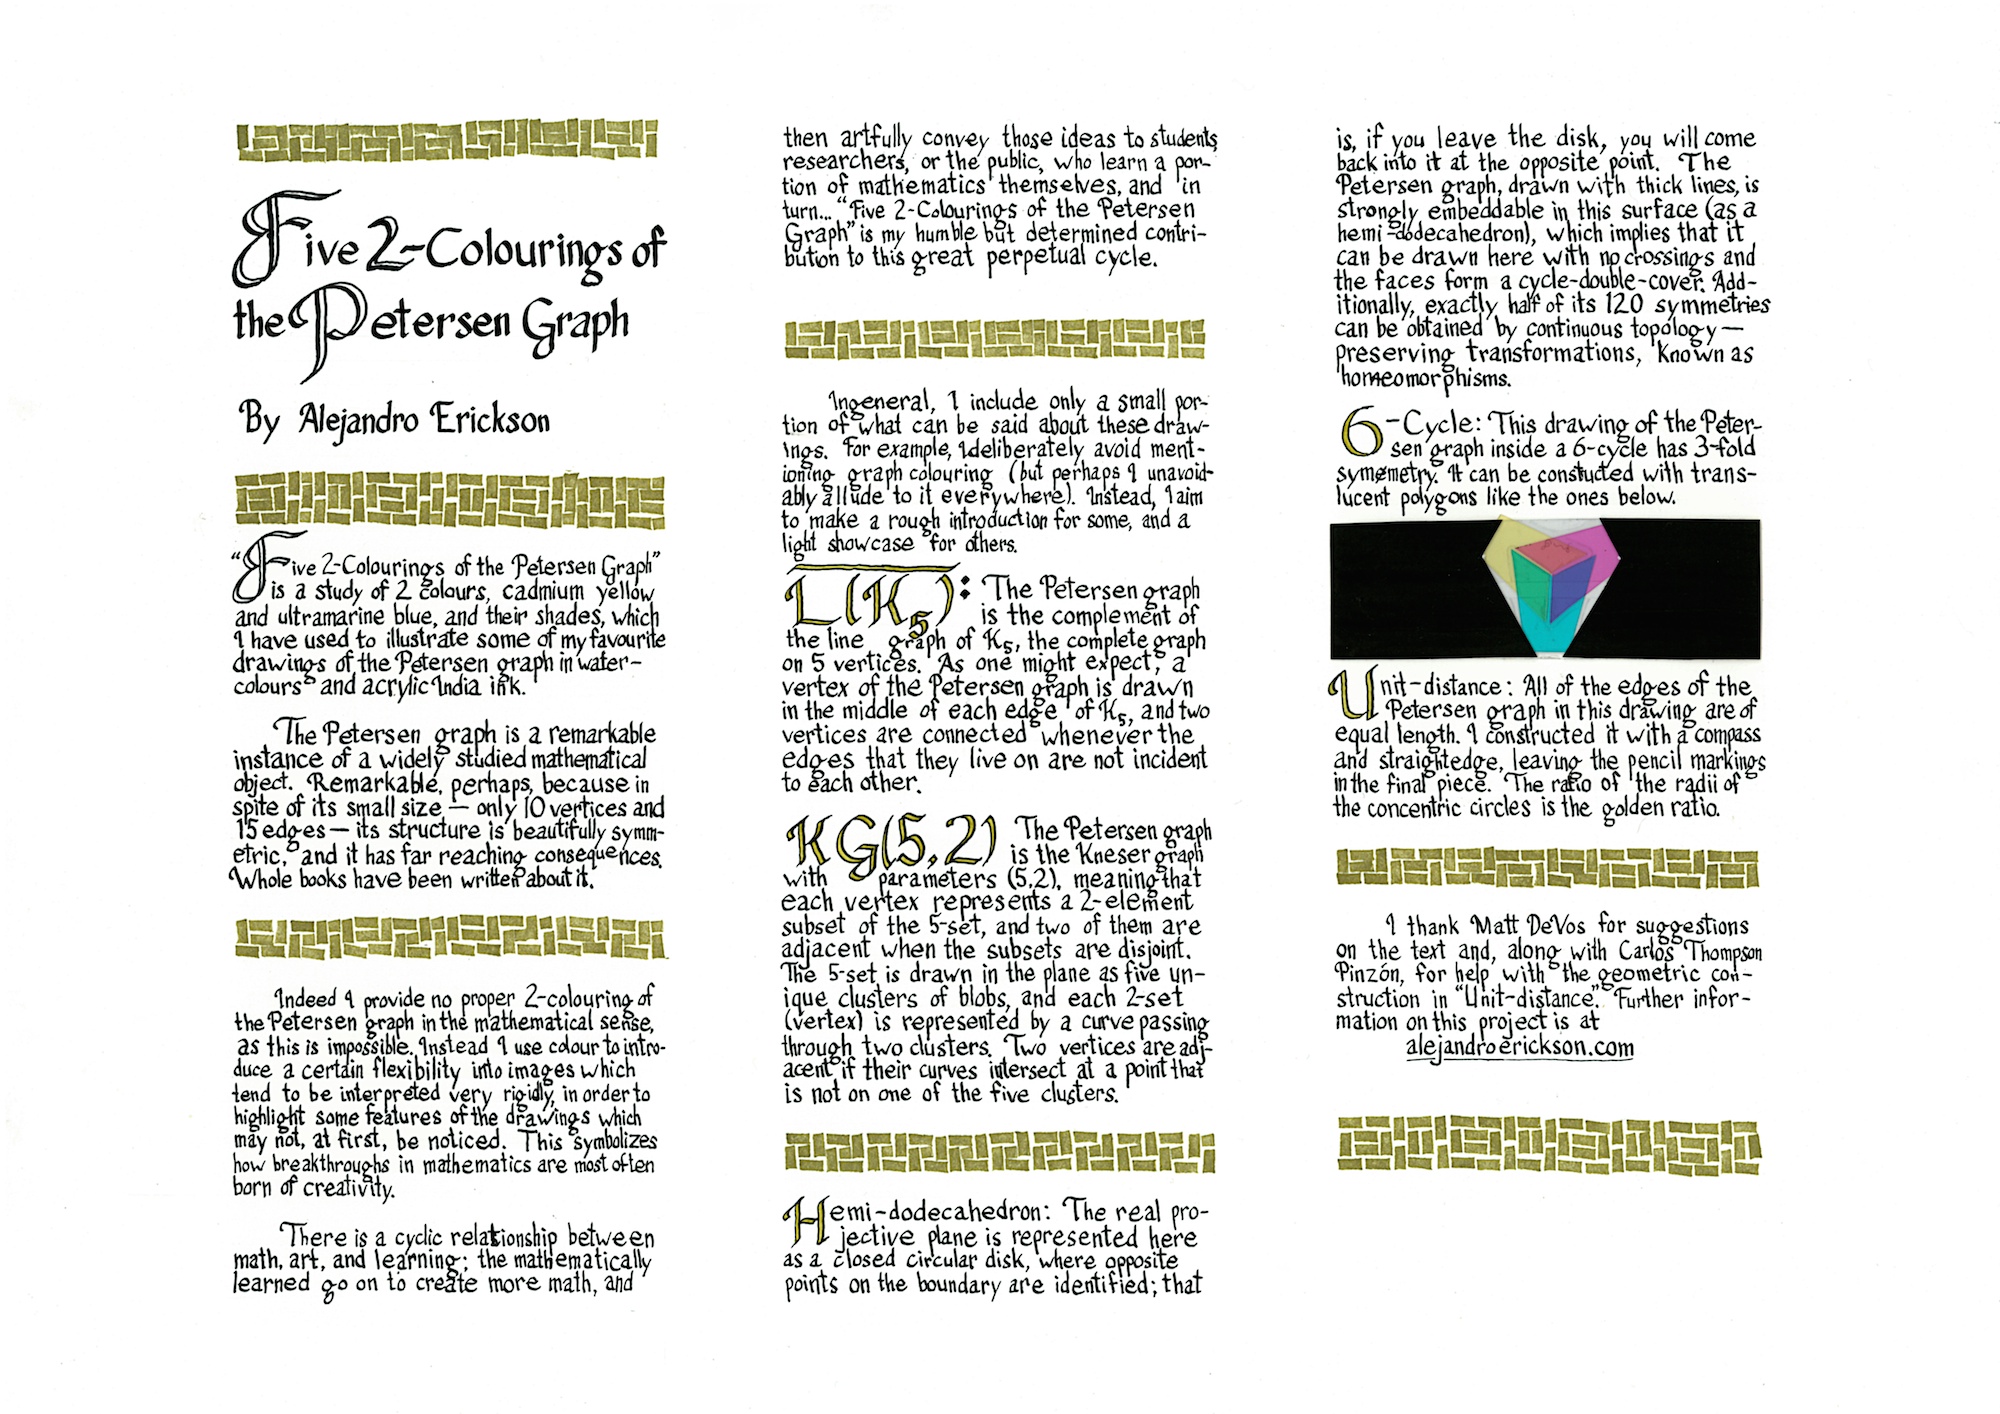 Five 2-Colourings of
the Petersen Graph
By Alejandro Erickson
"Five 2-Colourings of the Petersen Graph"
is a study of 2 colours, cadmium yellow
and ultramarine blue, and their shades, which
I have used to illustrate some of my favourite
drawings of the Petersen graph in water-
colours and acrylic India ink.
The Petersen graph is a remarkable
instance of a widely studied mathematical
object. Remarkable, perhaps, because in
spite of its small size — only 10 vertices and
15 edges — its structure is beautifully symm-
etric, and it has far reaching consequences.
Whole books have been written about it.
Indeed I provide no proper 2-colouring of
the Petersen graph in the mathematical sense,
as this is impossible. Instead I use colour to intro-
duce a certain flexibility into images which
tend to be interpreted very rigidly, in order to
highlight some features of the drawings which
may not, at first, be noticed. This symbolizes
how breakthroughs in mathematics are most often
born of creativity.
There is a cyclic relationship between
math, art, and learning; the mathematically
learned go on to create more math, and
then artfully convey those ideas to students,
researchers, or the public, who learn a por-
tion of mathematics themselves, and in
turn... "Five 2-Colourings of the Petersen
Graph" is my humble but determined contri-
bution to this great perpetual cycle.
In general, I include only a small por-
tion of what can be said about these draw-
ings. For example, I deliberately avoid ment-
ioning graph colouring (but perhaps I unavoid-
ably allude to it everywhere). Instead, I aim
to make a rough introduction for some, and a
light showcase for others.
L(K5): The Petersen graph
is the complement of
the line graph of K5, the complete graph
on 5 vertices. As one might expect, a
vertex of the Petersen graph is drawn
in the middle of each edge of K5, and two
vertices are connected whenever the
edges that they live on are not incident
to each other.
KG(5,2) The Petersen graph
is the Kneser graph
with parameters (5,2), meaning that
each vertex represents a 2-element
subset of the 5-set, and two of them are
adjacent when the subsets are disjoint.
The 5-set is drawn in the plane as five un-
ique clusters of blobs, and each 2-set
(vertex) is represented by a curve passing
through two clusters. Two vertices are adj-
acent if their curves intersect at a point that
is not on one of the five clusters.
Hemi-dodecahedron: The real pro-
jective plane is represented here
as a closed circular disk, where opposite
points on the boundary are identified; that
is, if you leave the disk, you will come
back into it at the opposite point. The
Petersen graph, drawn with thick lines, is
strongly embeddable in this surface (as a
hemi-dodecahedron), which implies that it
can be drawn here with no crossings and
the faces form a cycle-double-cover. Add-
itionally, exactly half of its 120 symmetries
can be obtained by continuous topology—
preserving transformations, known as
homeomorphisms.
6-Cycle: This drawing of the Peter-
sen graph inside a 6-cycle has 3-fold
symmetry. It can be constucted with trans-
lucent polygons like the ones below.
Unit-distance: All of the edges of the
Petersen graph in this drawing are of
equal length. I constructed it with a compass
and straightedge, leaving the pencil markings
in the final piece. The ratio of the radii of
the concentric circles is the golden ratio.
I thank Matt DeVos for suggestions
on the text and, along with Carlos Thompson
Pinzón, for help with the geometric con-
struction in "Unit-distance". Further infor-
mation on this project is at
alejandroerickson.com